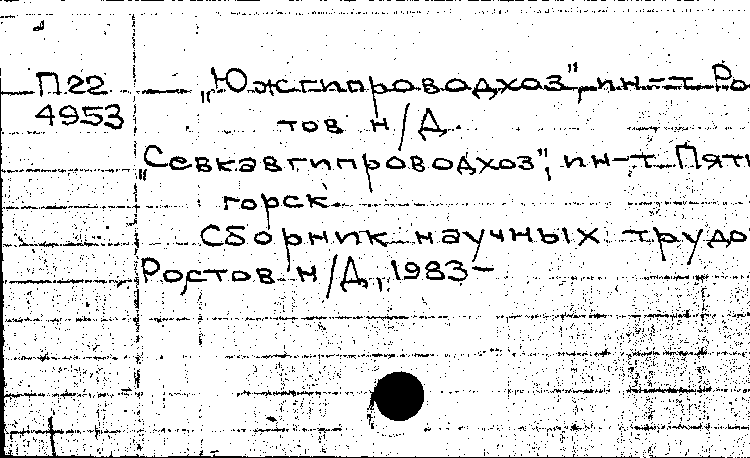 П22 „Южгипроводхоз", ин-т Ро
4953 тов н/Д.
„Севкавгипроводхоз", ин-т Пяти
горск.
Сборник научных трудо
Ростов н/Д, 1983-